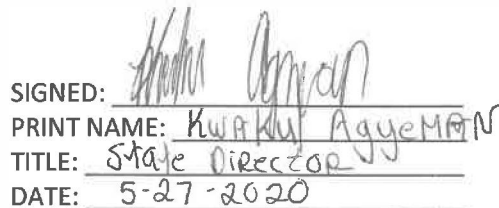 SIGNED:
PRINT NAME: KwAKu AgyeMAN
TITLE: State DiRectoR
DATE: 5-27-2020